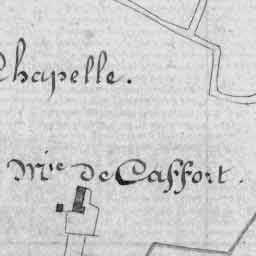 Chapelle.
Mie de Caffort.